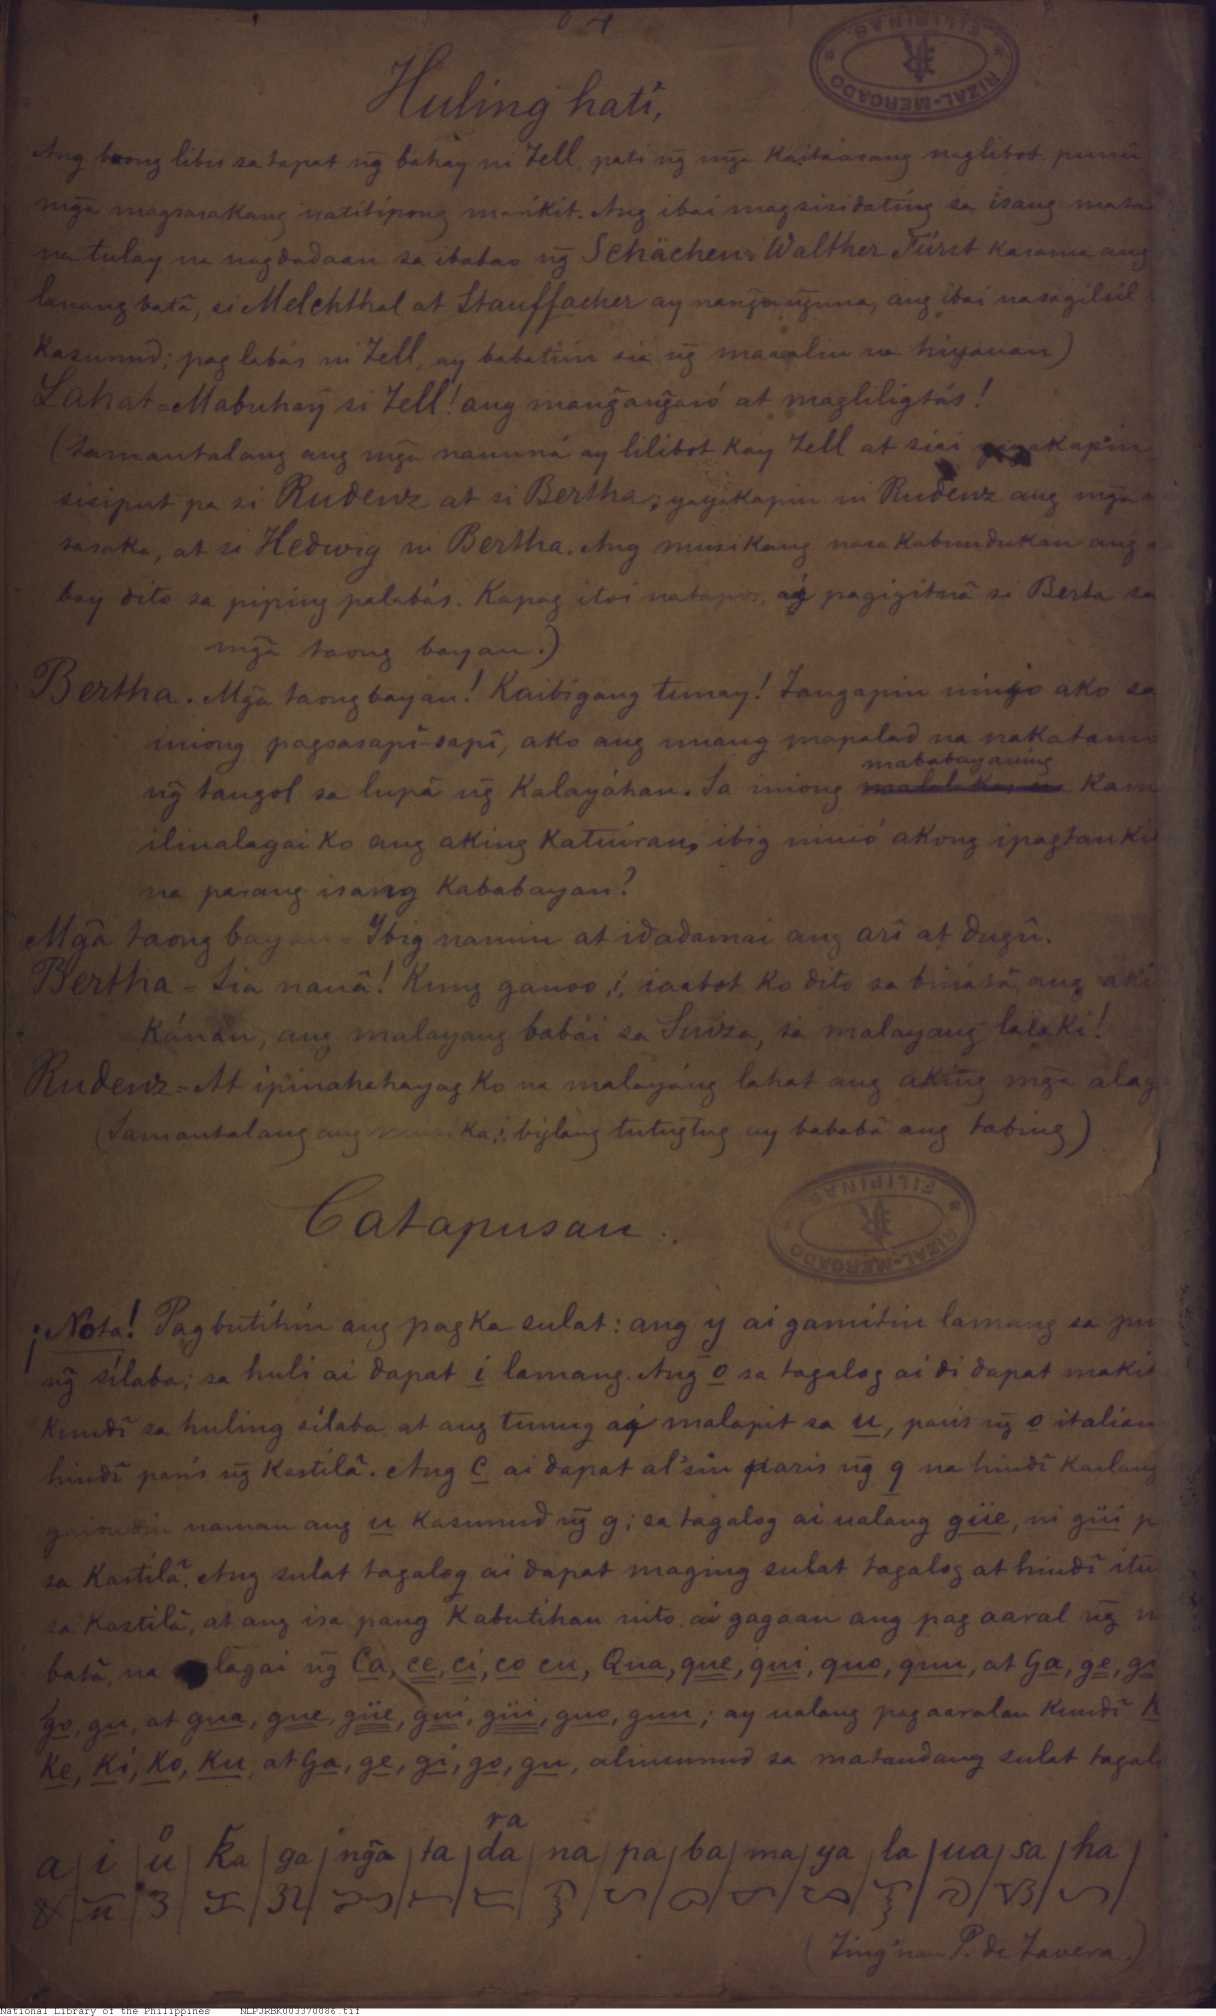 Huling hatĩ,
Ang boong libis sa tapat ng̃ bahay ni Tell, pati ng̃ mg̃a kaitaasang naglibot punũ
mg̃a magsasakang natitipong marikit. Ang ibai magsisidating sa isang
na tulay na nagdadaan sa ibabao ng̃ Schächen. Walther Fürst kasama ang
lauang batã, si Melchthal at Stauffacher ay nang̃ung̃una, ang ibai
kasunud; paglabás ni Tell, ay babatiin sia ng̃ masaliu na hiyauan)
Lahat = Mabuhay si Tell! ang mang̃ang̃asó at magliligtás!
(Samantalang ang mg̃a nauuná ay lilibot kay Tell at siai
sisiput pa si Rudenz at si Bertha; yayakapin ni Rudenz ang mg̃a
sasaka, at si Hedwig ni Bertha. Ang musikang nasa kabundukan ang
bay dito sa piping palabás. Kapag itoi natapos, ay pagigitnã si Berta sa
mg̃a taong bayan.)
Bertha. Mg̃a taong bayan! Kaibigang tunay! Tangapin ninyo ako sa
iniong pagsasapĩ-sapĩ, ako ang unang mapalad na nakatamo
ng̃ tangol sa lupã ng̃ Kalayáhan. Sa iniong mababayaning
ilinalagai ko ang aking katuiran, ibig ninió akong ipagtankil
na parang isang kababayan?
Mg̃a taong bayan = Ybig namin at idadamai ang arĩ at dugũ.
Bertha = Sia nauã! Kung ganoo,i, iaabot ko dito sa binatã, ang
kánan, ang malayang babái sa Suiza, sa malayang lalaki!
Rudenz = At ipinahahayag ko na malayáng lahat ang aking mg̃a
(Samantalang ang musika,i, biglang tutugtug ay bababã ang tabing)
Catapusan.
¡Nota! Pagbutihin ang pagka sulat: ang y ai gamitin lamang sa
ng̃ sílaba; sa huli ai dapat i lamang. Ang o sa tagalog ai di dapat
kundĩ sa huling sílaba at ang tunug ay malapit sa u, paris ng̃ o
hindĩ paris ng̃ Kastilã. Ang c ai dapat al'sin paris ng̃ q na hindĩ
naman ang u kasunud ng̃ g; sa tagalog ai ualang güe, ni güi
sa Kastilã. Ang sulat tagalog ai dapat maging sulat tagalog at hindĩ
sa Kastilã, at ang isa pang kabutihan nito, ai gagaan ang pag aaral ng̃
batã, na lagai ng̃ Ca, ce, ci, co cu, Qua, que, qui, quo, quu, at Ga, ge, gi
go, gu, at gua, gue, güe, gui, güi, guo, guu; ay ualang pagaaralan kundĩ
Ke, Ki, Ko, Ku, at Ga, ge, gi, go, gu, alinsunud sa matandang sulat
ra
a | i | ů | ka | ga | ng̃a | ta | da | na | pa | ba | ma | ya | la | ua | sa | ha
ᜀ ᜁ ᜂ ᜃ ᜄ ᜅ ᜆ ᜇ ᜈ ᜉ ᜊ ᜋ ᜌ ᜎ ᜏ ᜐ ᜑ
(Ting'nan P. de Tavera.)
RIZAL-MERCADO
FILIPINAS
RIZAL-MERCADO
FILIPINAS
National Library of the Philippines NLPJRBK003370086.tif